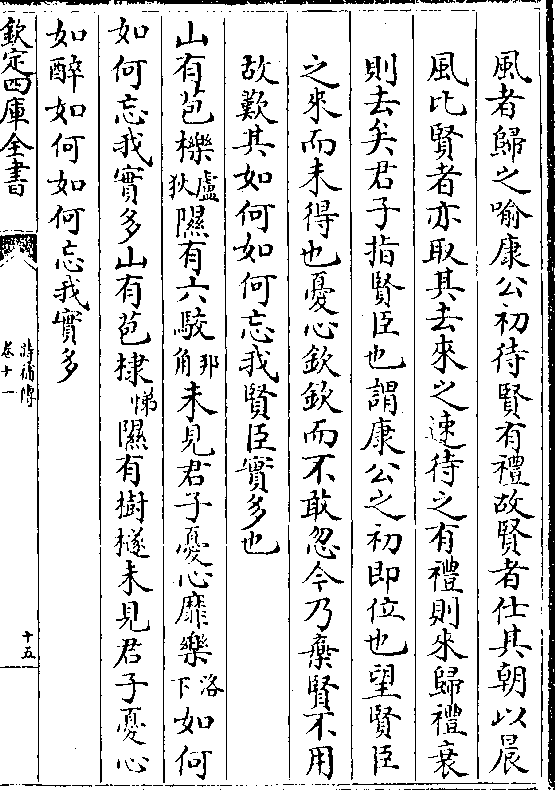 風者歸之喻康公初待賢有禮故賢者仕其朝以晨
風比賢者亦取其去來之速待之有禮則來歸禮衰
則去矣君子指賢臣也謂康公之初即位也望賢臣
之來而未得也憂心欽欽而不敢忽今乃棄賢不用
故歎其如何如何忘我賢臣實多也
山有苞櫟盧狄隰有六駮邦角未見君子憂心靡樂洛下如何
如何忘我實多山有苞棣悌隰有樹檖未見君子憂心
如醉如何如何忘我實多
欽定四庫全書
詩補傳
卷十一
十五